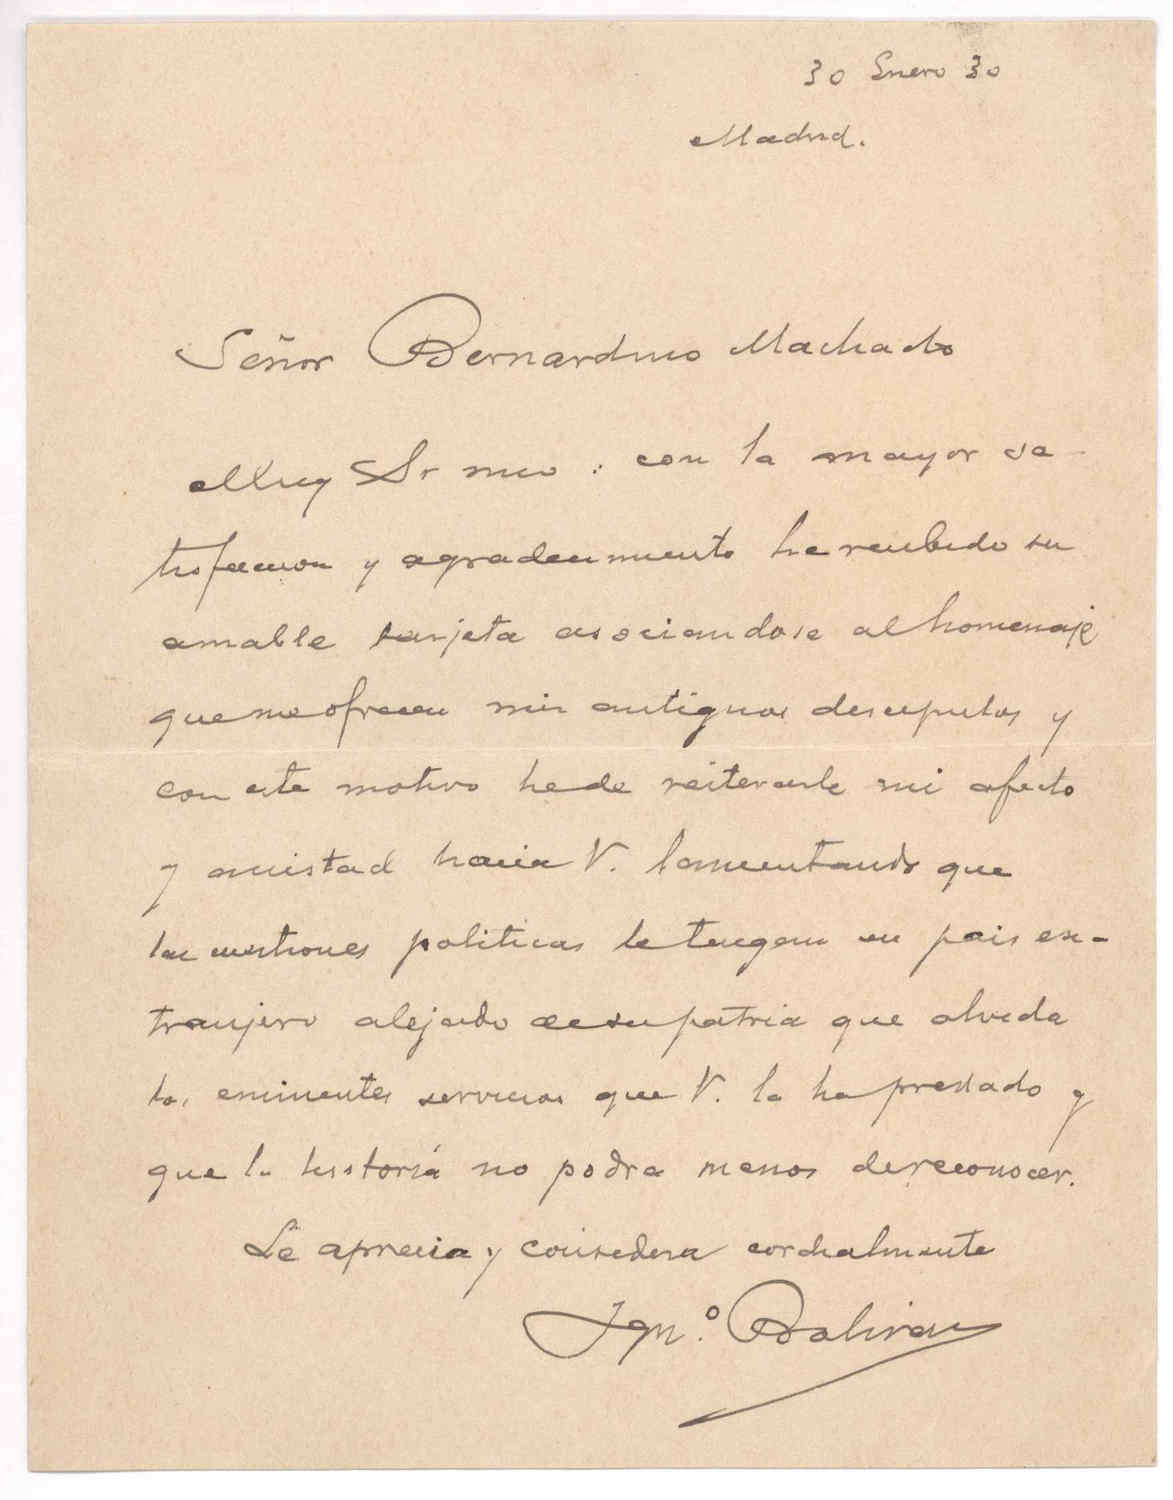 30 Enero 30
Madrid.
Señor Bernardino Machado
Muy Sr mio : con la mayor sa-
tisfaccion y agradecimiento he recibido su
amable tarjeta asociandose al homenaje
que me ofrecen mis antiguos discipulos y
con este motivo he de reiterarle mi afecto
y amistad hacia V. lamentando que
las cuestiones politicas le tengan en pais ex-
tranjero alejado de su patria que olvida
los eminentes servicios que V. la ha prestado y
que la historia no podra menos de reconocer.
Le aprecia y considera cordialmente
Ign.º Bolivar